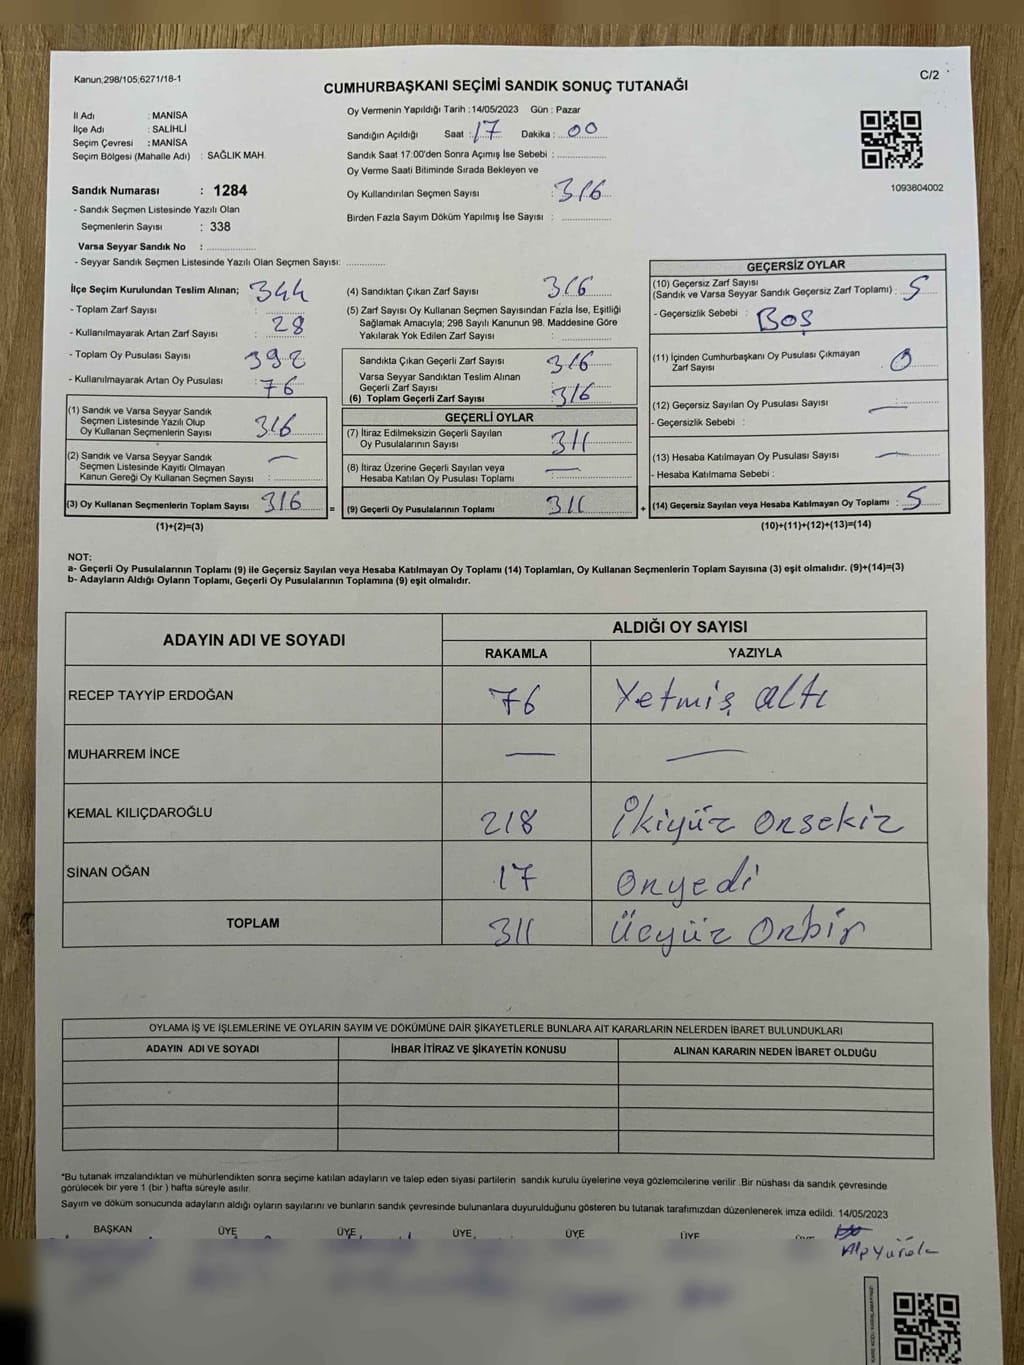 Kanun;298/105;6271/18-1
C/2
CUMHURBAŞKANI SEÇİMİ SANDIK SONUÇ TUTANAĞI
İl Adı : MANİSA
İlçe Adı : SALİHLİ
Seçim Çevresi : MANİSA
Seçim Bölgesi (Mahalle Adı) : SAĞLIK MAH.
Sandık Numarası : 1284
- Sandık Seçmen Listesinde Yazılı Olan
Seçmenlerin Sayısı : 338
Varsa Seyyar Sandık No :
- Seyyar Sandık Seçmen Listesinde Yazılı Olan Seçmen Sayısı:
Oy Vermenin Yapıldığı Tarih :14/05/2023 Gün : Pazar
Sandığın Açıldığı Saat : 17 Dakika : 00
Sandık Saat 17:00'den Sonra Açımış İse Sebebi :
Oy Verme Saati Bitiminde Sırada Bekleyen ve
Oy Kullandırılan Seçmen Sayısı : 316
Birden Fazla Sayım Döküm Yapılmış İse Sayısı :
1093804002
İlçe Seçim Kurulundan Teslim Alınan;
- Toplam Zarf Sayısı : 344
- Kullanılmayarak Artan Zarf Sayısı : 28
- Toplam Oy Pusulası Sayısı : 392
- Kullanılmayarak Artan Oy Pusulası : 76
(1) Sandık ve Varsa Seyyar Sandık
Seçmen Listesinde Yazılı Olup
Oy Kullanan Seçmenlerin Sayısı 316
(2) Sandık ve Varsa Seyyar Sandık
Seçmen Listesinde Kayıtlı Olmayan
Kanun Gereği Oy Kullanan Seçmen Sayısı : —
(3) Oy Kullanan Seçmenlerin Toplam Sayısı 316
(1)+(2)=(3)
(4) Sandıktan Çıkan Zarf Sayısı 316
(5) Zarf Sayısı Oy Kullanan Seçmen Sayısından Fazla İse, Eşitliği
Sağlamak Amacıyla; 298 Sayılı Kanunun 98. Maddesine Göre
Yakılarak Yok Edilen Zarf Sayısı :
Sandıkta Çıkan Geçerli Zarf Sayısı 316
Varsa Seyyar Sandıktan Teslim Alınan
Geçerli Zarf Sayısı
(6) Toplam Geçerli Zarf Sayısı 316
GEÇERLİ OYLAR
(7) İtiraz Edilmeksizin Geçerli Sayılan
Oy Pusulalarının Sayısı 311
(8) İtiraz Üzerine Geçerli Sayılan veya
Hesaba Katılan Oy Pusulası Toplamı —
= (9) Geçerli Oy Pusulalarının Toplamı 311
GEÇERSİZ OYLAR
(10) Geçersiz Zarf Sayısı
(Sandık ve Varsa Seyyar Sandık Geçersiz Zarf Toplamı) : 5
- Geçersizlik Sebebi : BOŞ
(11) İçinden Cumhurbaşkanı Oy Pusulası Çıkmayan
Zarf Sayısı 0
(12) Geçersiz Sayılan Oy Pusulası Sayısı : —
- Geçersizlik Sebebi :
(13) Hesaba Katılmayan Oy Pusulası Sayısı —
- Hesaba Katılmama Sebebi :
+ (14) Geçersiz Sayılan veya Hesaba Katılmayan Oy Toplamı : 5
(10)+(11)+(12)+(13)=(14)
NOT:
a- Geçerli Oy Pusulalarının Toplamı (9) ile Geçersiz Sayılan veya Hesaba Katılmayan Oy Toplamı (14) Toplamları, Oy Kullanan Seçmenlerin Toplam Sayısına (3) eşit olmalıdır. (9)+(14)=(3)
b- Adayların Aldığı Oyların Toplamı, Geçerli Oy Pusulalarının Toplamına (9) eşit olmalıdır.
ADAYIN ADI VE SOYADI ALDIĞI OY SAYISI
RAKAMLA YAZIYLA
RECEP TAYYİP ERDOĞAN 76 Yetmiş altı
MUHARREM İNCE — —
KEMAL KILIÇDAROĞLU 218 İkiyüz onsekiz
SİNAN OĞAN 17 Onyedi
TOPLAM 311 Üçyüz Onbir
OYLAMA İŞ VE İŞLEMLERİNE VE OYLARIN SAYIM VE DÖKÜMÜNE DAİR ŞİKAYETLERLE BUNLARA AİT KARARLARIN NELERDEN İBARET BULUNDUKLARI
ADAYIN ADI VE SOYADI İHBAR İTİRAZ VE ŞİKAYETİN KONUSU ALINAN KARARIN NEDEN İBARET OLDUĞU
*Bu tutanak imzalandıktan ve mühürlendikten sonra seçime katılan adayların ve talep eden siyasi partilerin sandık kurulu üyelerine veya gözlemcilerine verilir .Bir nüshası da sandık çevresinde
görülecek bir yere 1 (bir ) hafta süreyle asılır.
Sayım ve döküm sonucunda adayların aldığı oyların sayılarını ve bunların sandık çevresinde bulunanlara duyurulduğunu gösteren bu tutanak tarafımızdan düzenlenerek imza edildi. 14/05/2023
BAŞKAN ÜYE ÜYE ÜYE ÜYE ÜYE